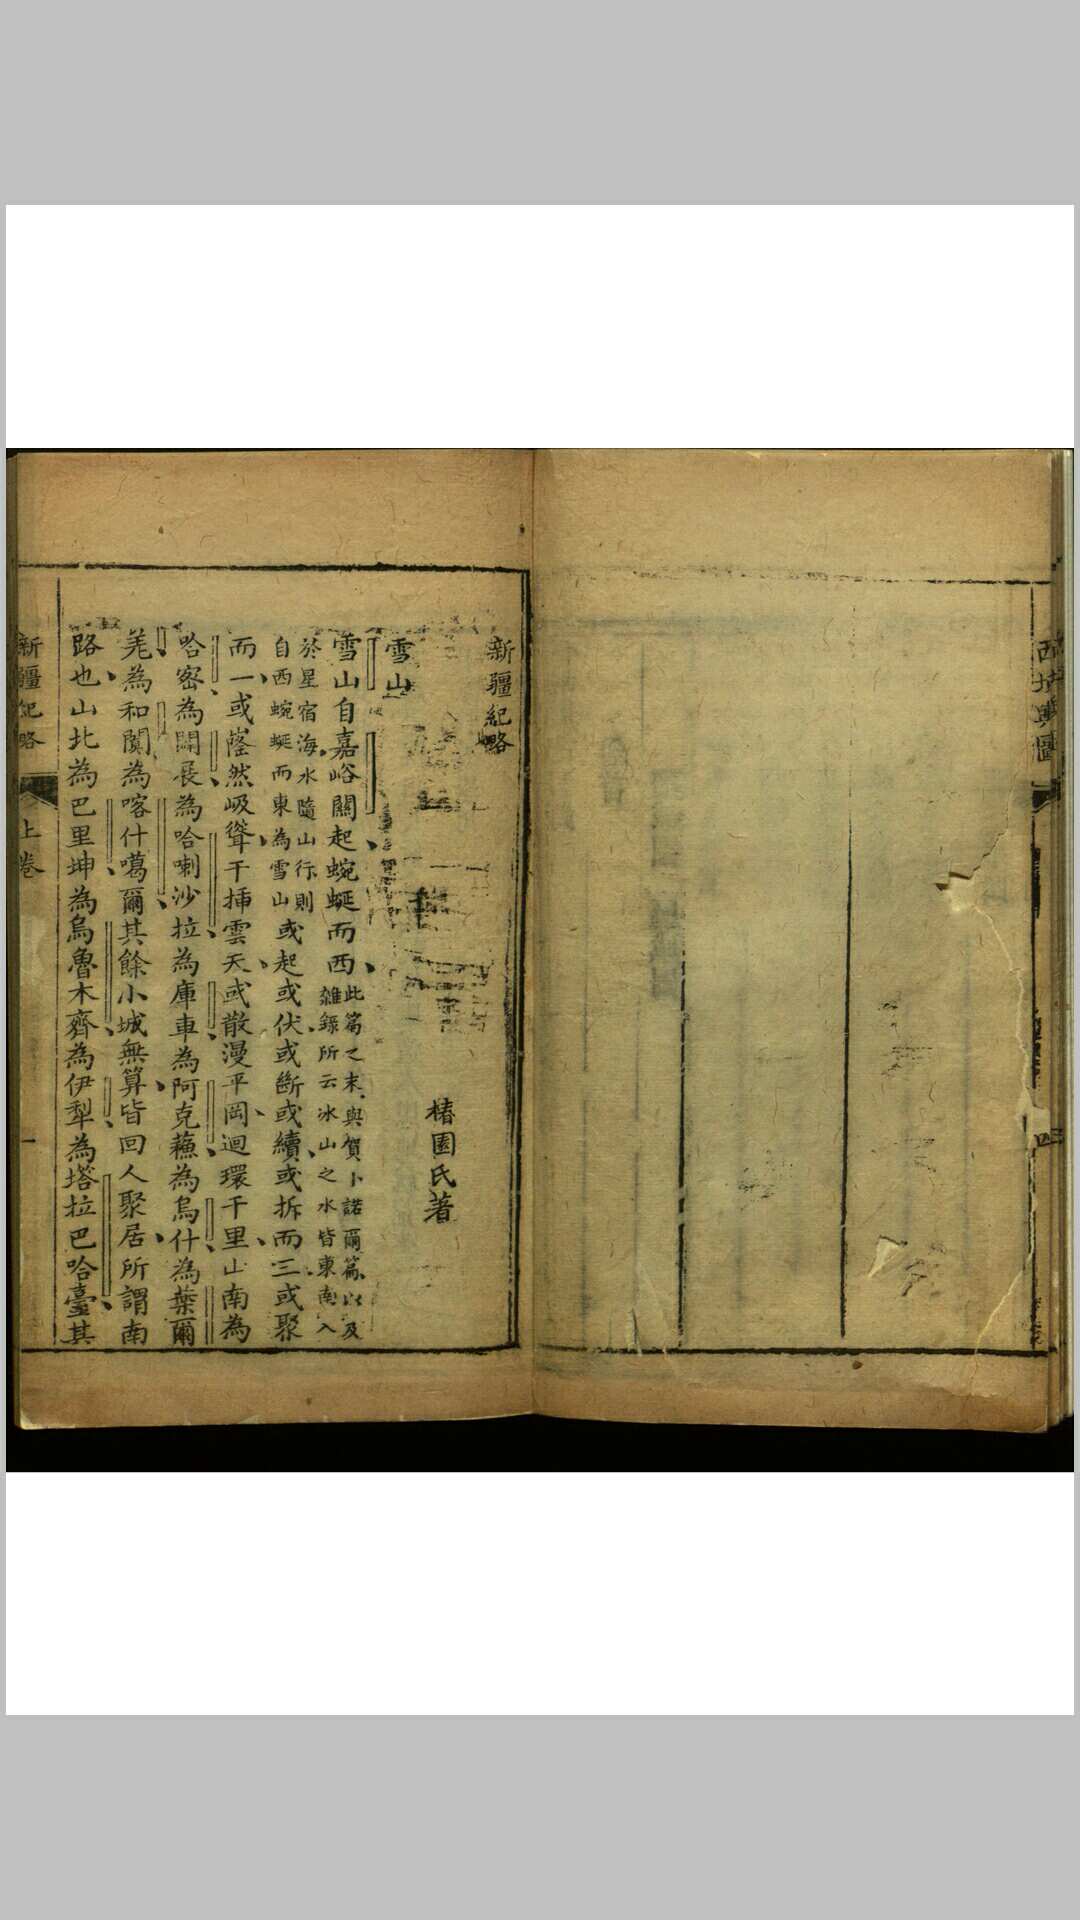 西域輿圖
四
新疆紀略
椿園氏著
雪山
雪山自嘉峪關起蜿蜒而西此篇之末與賀卜諾爾篇以及
雜錄所云冰山之水皆東南入
於星宿海水隨山行則
自西蜿蜒而東為雪山或起或伏或斷或續或拆而三或聚
而一或嶐然岌聳千揷雲天或散漫平岡迴環千里山南為
哈密為闢展為哈喇沙拉為庫車為阿克蘓為烏什為葉爾
羌為和闐為喀什噶爾其餘小城無算皆回人聚居所謂南
路也山北為巴里坤為烏魯木齊為伊犁為塔拉巴哈臺其
新疆紀略
上卷
一